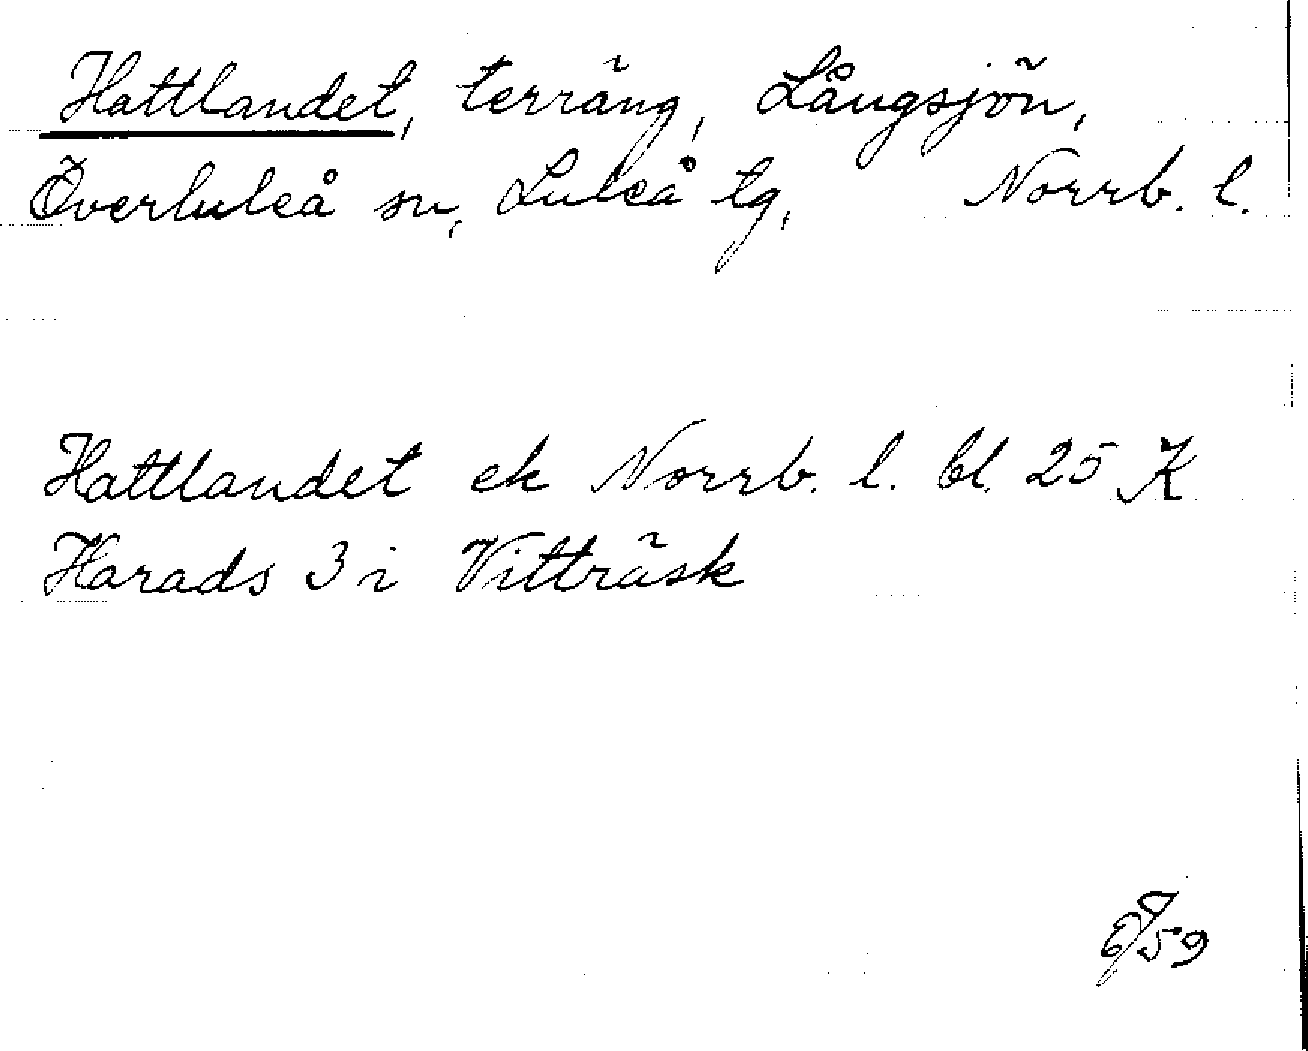 Hattlandet, terräng, Långsjön,
Överluleå sn, Luleå tg, Norrb. l.
Hattlandet ek Norrb. l. bl. 25 K
Harads 3 i Vitträsk
59